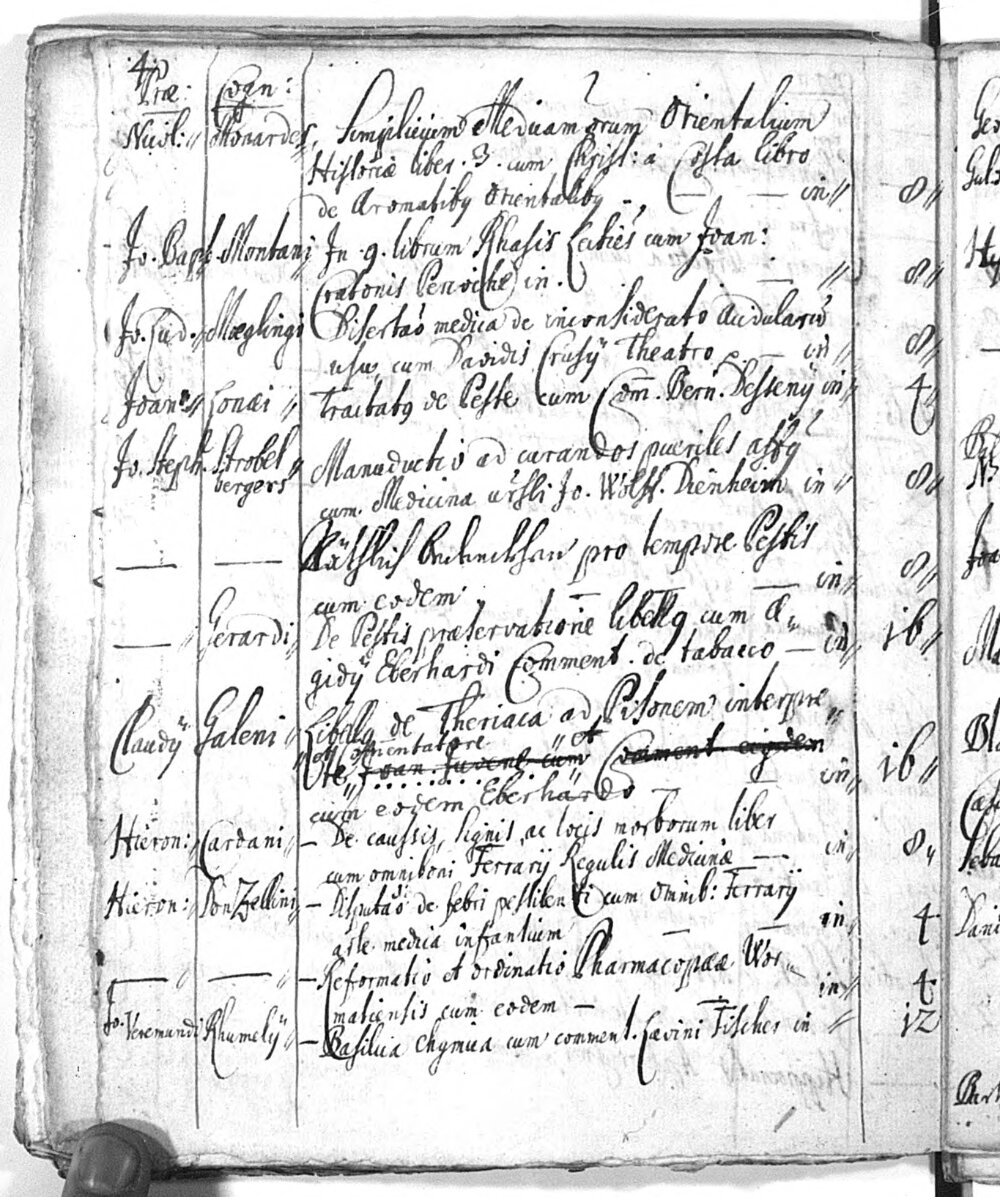 4
Præ: Cogn:
Nicol: „ Monardes, Simplicium Medicamentorum Orientalium
Historiæ liber. 3. cum Christ: à Costa libro
de Aromatibq Orientalibq — — in „ 8 „
Jo. Bapt. Montani Jn 9. librum Rhasis Lectiēs cum Joan:
Cratonis Perioche in. — „ 8 „
Jo. Lud. „ Mæglingi Disertaō medica de inconsiderato Acidularū
usu, cum Davidis Crusÿ Theatro — in „ 8 „
Joan: „ Lonæi „ Tractatq de Peste cum Com̄. Bern. Dessenÿ in „ 4 „
Jo. Steph. Strobel
bergers „ Manuductio ad curandos pueriles affq
cum Medicina Jo. Wolff. Dienheim in „ 8 „
— — Räthlich pro tempore Pestis
cum eodem — — in „ 8 „
— „ Gerardi „ De Pestis præservatione libellq cum Æ„
gidÿ Eberhardi Comment. de tabacco — in „ 16 „
Claudÿ Galeni „ Libellq de Theriaca ad Pisonem interpre„
Commentatore et
te, Joan. Juvene cum Comment ejusdem
cum eodem Eberhardo — in „ 16 „
Hieron: „ Cardani „ — De caussis, signis, ac locis morborum liber
cum omniboni Ferrarÿ Regulis Medicinæ — in „ 8 „
Hieron: „ Donzellini „ — Disputaō de febri pestilenti cum Omnib: Ferrarÿ
arte medica infantium — — in „ 4
— „ — „ — Reformatio et ordinatio Pharmacopææ Wor„
matiensis cum eodem — in „ 4
Jo. Veremundi Rhumelÿ „ — Basilica chymica cum comment. Lævini Fischer in „ 12